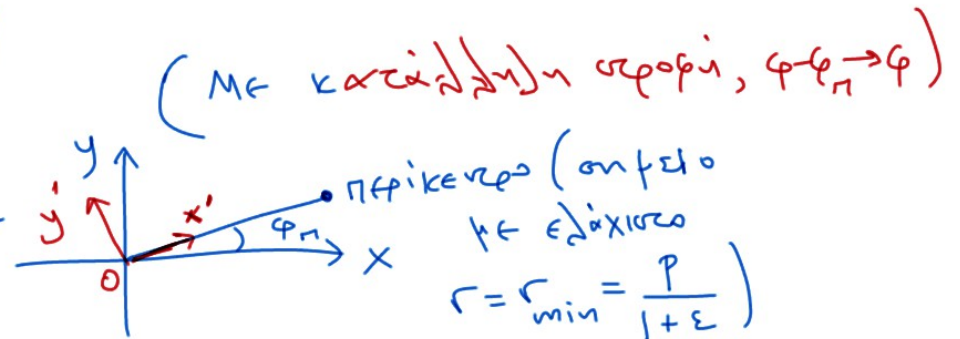 (Με κατάλληλη στροφή, φ-φ_π→φ)
y
y' x' περίκεντρο (σημείο
φ_π με ελάχιστο
O x r = r_min = p/(1+ε))